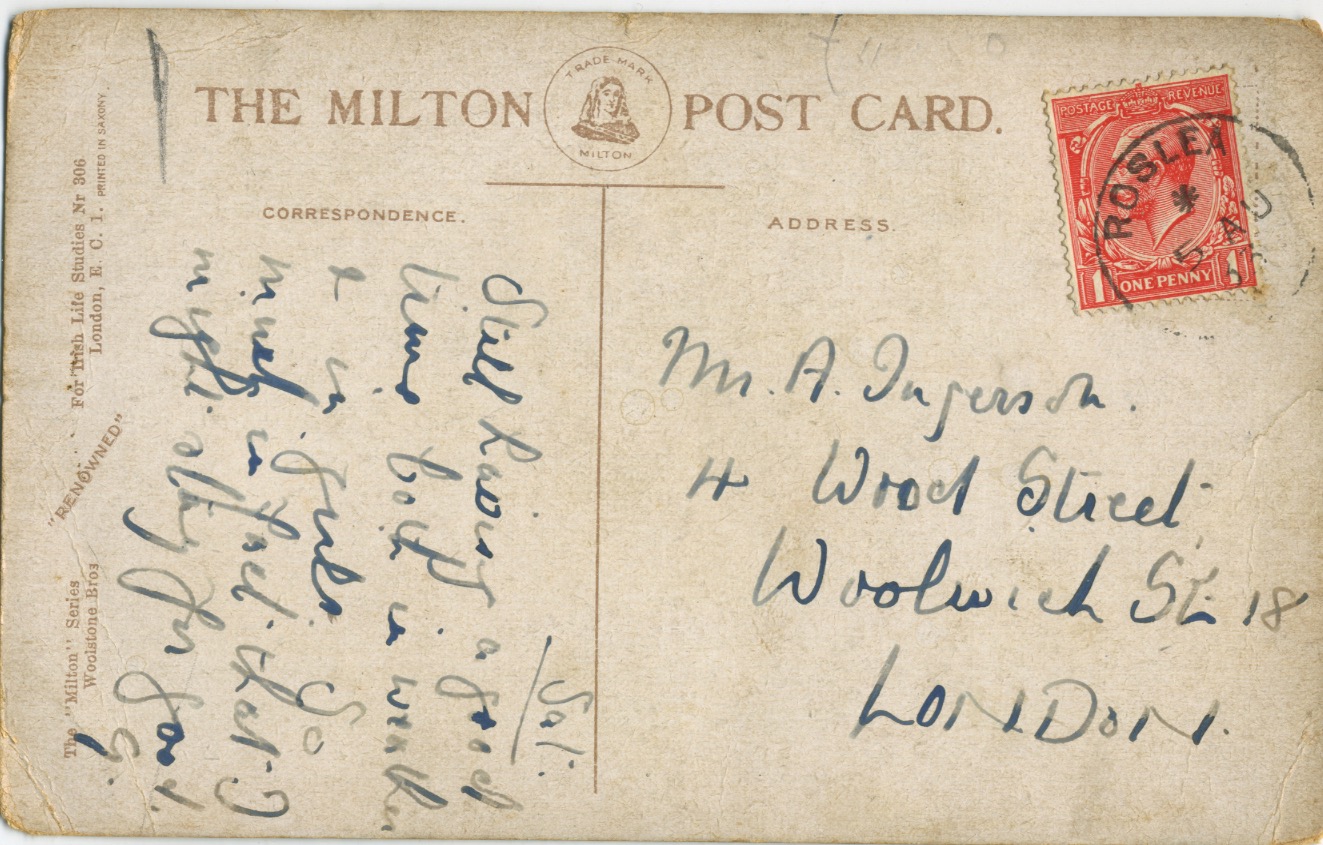 THE MILTON POST CARD.
TRADE MARK
MILTON
CORRESPONDENCE.
ADDRESS.
POSTAGE REVENUE
1 ONE PENNY 1
ROSLEA
5 AU
Sat.
Still having a good
time both in weather
& in girls. So
much in fact that I
might stay for good.
G.
Mr. A. Ingerson.
4 Wood Street
Woolwich SE 18
LONDON.
The "Milton" Series "RENOWNED" For Irish Life Studies Nr 306
Woolstone Bros London, E. C. 1. PRINTED IN SAXONY.